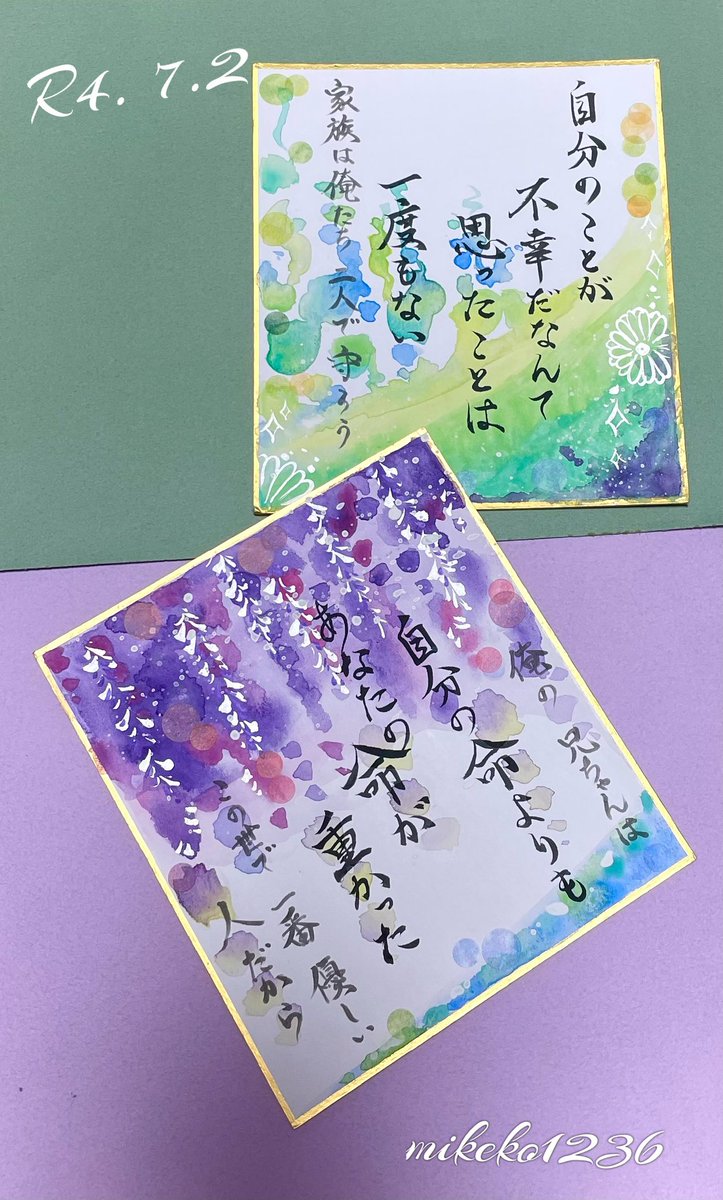 R4. 7.2
自分のことが
不幸だなんて
思ったことは
一度もない
家族は俺たち二人で守ろう
俺の兄ちゃんは
自分の命よりも
あなたの命が
重かった
この世で
一番優しい
人だから
mikeko1236